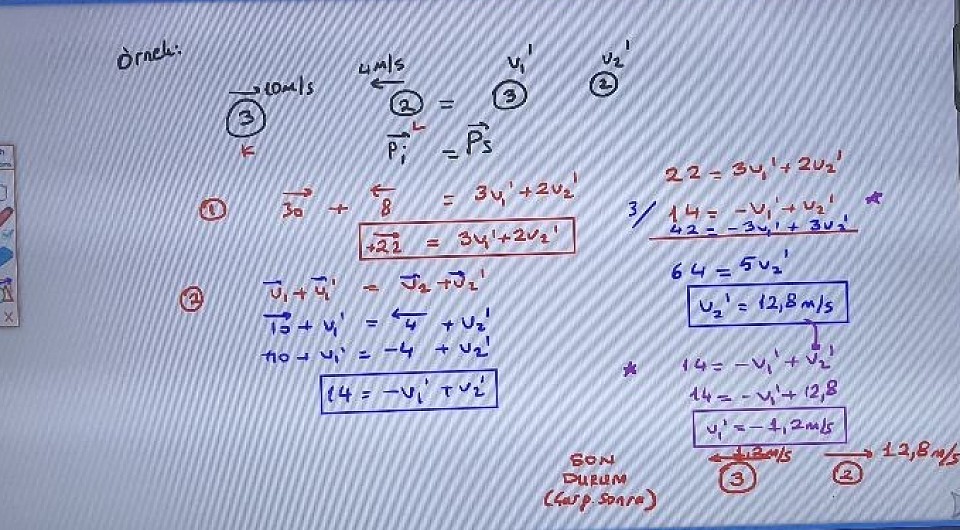 Örnek:
10m/s 4m/s v₁' v₂'
3 2 = 3 2
K L
Pi = Ps
① 30 + 8 = 3v₁'+2v₂'
+22 = 3v₁'+2v₂'
② v₁+v₁' = v₂+v₂'
10+v₁' = 4 +v₂'
+10+v₁' = -4 +v₂'
14 = -v₁' +v₂'
22 = 3v₁'+2v₂'
3/ 14 = -v₁'+v₂'
42 = -3v₁'+3v₂'
64 = 5v₂'
v₂' = 12,8m/s
14 = -v₁'+v₂'
14 = -v₁'+12,8
v₁' = -1,2m/s
SON
DURUM
(Çarp. Sonra)
1,2m/s 12,8m/s
3 2